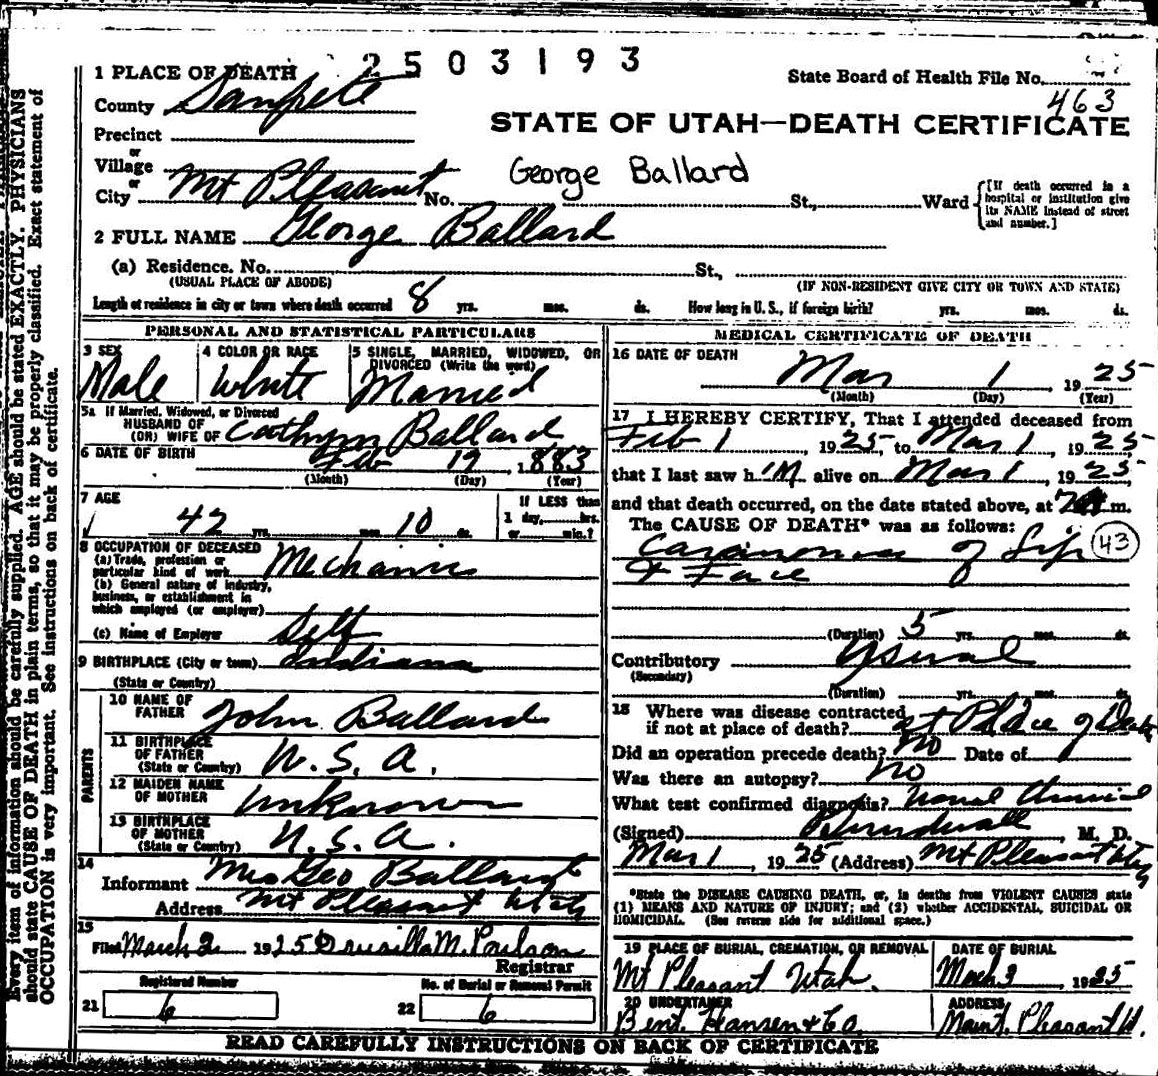 2503193
1 PLACE OF DEATH
State Board of Health File No.
County Sanpete
463
STATE OF UTAH—DEATH CERTIFICATE
Precinct
or
Village
George Ballard
or
City Mt Pleasant No. St., Ward
[If death occurred in a hospital or institution give its NAME instead of street and number.]
2 FULL NAME George Ballard
(a) Residence. No. St.,
(USUAL PLACE OF ABODE) (IF NON-RESIDENT GIVE CITY OR TOWN AND STATE)
Length of residence in city or town where death occurred 8 yrs. mos. ds. How long in U. S., if foreign birth? yrs. mos. ds.
PERSONAL AND STATISTICAL PARTICULARS
3 SEX Male
4 COLOR OR RACE White
5 SINGLE, MARRIED, WIDOWED, OR DIVORCED (Write the word) Married
5a If Married, Widowed, or Divorced
HUSBAND OF
(OR) WIFE OF Ballard
6 DATE OF BIRTH Feb 19 1883
(Month) (Day) (Year)
7 AGE
42 yrs. mos. 10 ds.
If LESS than
1 day, hrs.
or min.?
8 OCCUPATION OF DECEASED
(a) Trade, profession or
particular kind of work Mechanic
(b) General nature of industry,
business, or establishment in
which employed (or employer)
(c) Name of Employer Self
9 BIRTHPLACE (City or town) Indiana
(State or Country)
PARENTS
10 NAME OF
FATHER John Ballard
11 BIRTHPLACE
OF FATHER
(State or Country) U. S. A.
12 MAIDEN NAME
OF MOTHER Unknown
13 BIRTHPLACE
OF MOTHER
(State or Country) U. S. A.
14
Informant Mrs Geo Ballard
Address Mt Pleasant Utah
15
Filed March 2 1925 Drusilla M. Poulson
Registrar
Registered Number
21 6
No. of Burial or Removal Permit
22 6
MEDICAL CERTIFICATE OF DEATH
16 DATE OF DEATH
Mar 1, 1925
(Month) (Day) (Year)
17 I HEREBY CERTIFY, That I attended deceased from
Feb 1 1925, to Mar 1, 1925
that I last saw h im alive on Mar 1, 1925
and that death occurred, on the date stated above, at m.
The CAUSE OF DEATH* was as follows:
Carcinoma of Lip 43
& Face
(Duration) 5 yrs. mos. ds.
Contributory Usual
(Secondary)
(Duration) yrs. mos. ds.
18 Where was disease contracted
if not at place of death? at Place of Death
Did an operation precede death? No Date of
Was there an autopsy? No
What test confirmed diagnosis? Usual Clinical
(Signed) M. D.
Mar 1 1925 (Address) Mt Pleasant Utah
*State the DISEASE CAUSING DEATH, or, in deaths from VIOLENT CAUSES state
(1) MEANS AND NATURE OF INJURY; and (2) whether ACCIDENTAL, SUICIDAL OR
HOMICIDAL. (See reverse side for additional space.)
19 PLACE OF BURIAL, CREMATION, OR REMOVAL
Mt Pleasant Utah.
DATE OF BURIAL
March 3 1925
20 UNDERTAKER
Bent. Hansen & Co.
ADDRESS
Mount Pleasant U.
READ CAREFULLY INSTRUCTIONS ON BACK OF CERTIFICATE
Every item of information should be carefully supplied. AGE should be stated EXACTLY. PHYSICIANS
should state CAUSE OF DEATH in plain terms, so that it may be properly classified. Exact statement of
OCCUPATION is very important. See instructions on back of certificate.